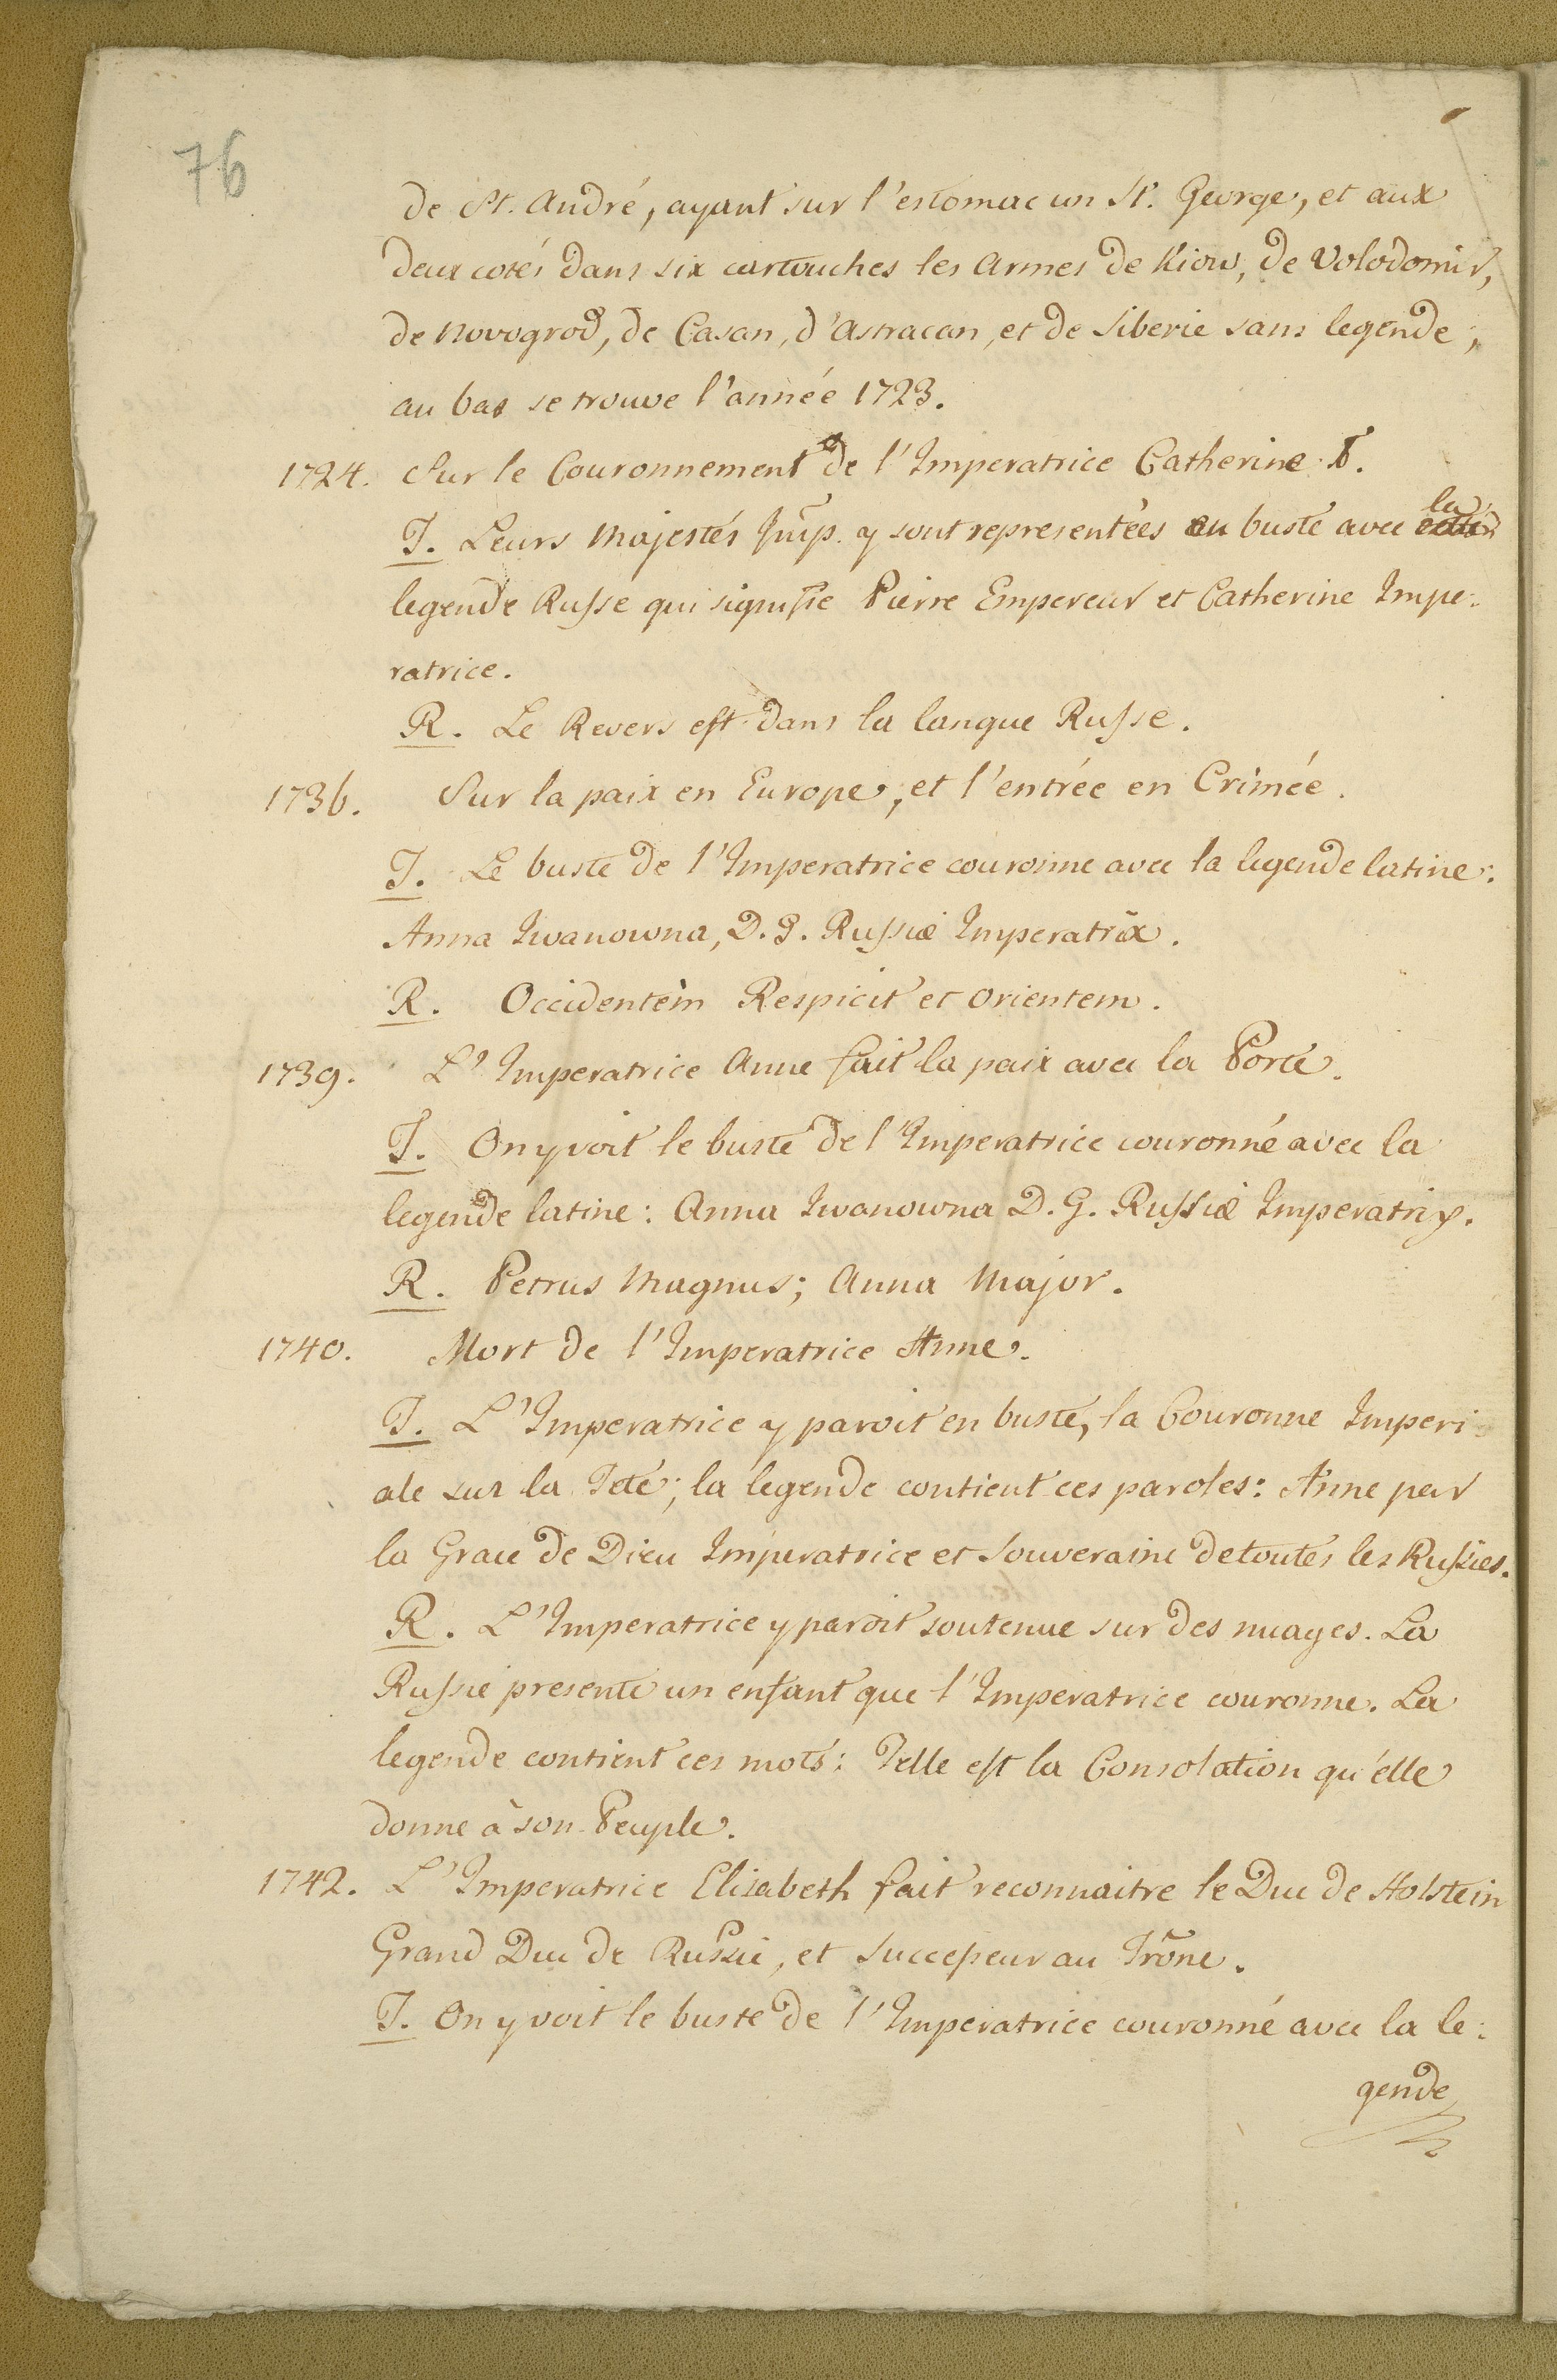 76
de St. André, ayant sur l'estomac un St. George, et aux
deux cotés dans six cartouches les Armes de Kiow, de Volodomir,
de Novogrod, de Casan, d'Astracan, et de Siberie sans legende;
au bas se trouve l'année 1723.
1724. Sur le Couronnement de l'Imperatrice Catherine I.
T. Leurs Majestés Imp. y sont representées en buste avec la
legende Russe qui signifie Pierre Empereur et Catherine Impe-
ratrice.
R. Le Revers est dans la langue Russe.
1736. Sur la paix en Europe, et l'entrée en Crimée.
T. Le buste de l'Imperatrice couronne avec la legende latine:
Anna Iwanowna, D. G. Russiæ Imperatrix.
R. Occidentem Respicit et Orientem.
1739. L'Imperatrice Anne fait la paix avec la Porte.
T. On y voit le buste de l'Imperatrice couronné avec la
legende latine: Anna Iwanowna D. G. Russiæ Imperatrix.
R. Petrus Magnus; Anna Major.
1740. Mort de l'Imperatrice Anne.
T. L'Imperatrice y paroit en buste, la Couronne Imperi-
ale sur la Tete; la legende contient ces paroles: Anne par
la Grace de Dieu Imperatrice et Souveraine de toutes les Russies.
R. L'Imperatrice y paroit soutenue sur des nuages. La
Russie presente un enfant que l'Imperatrice couronne. La
legende contient ces mots: Telle est la Consolation qu'elle
donne à son Peuple.
1742. L'Imperatrice Elisabeth fait reconnaitre le Duc de Holstein
Grand Duc de Russie, et Successeur au Trône.
T. On y voit le buste de l'Imperatrice couronné avec la le-
gende